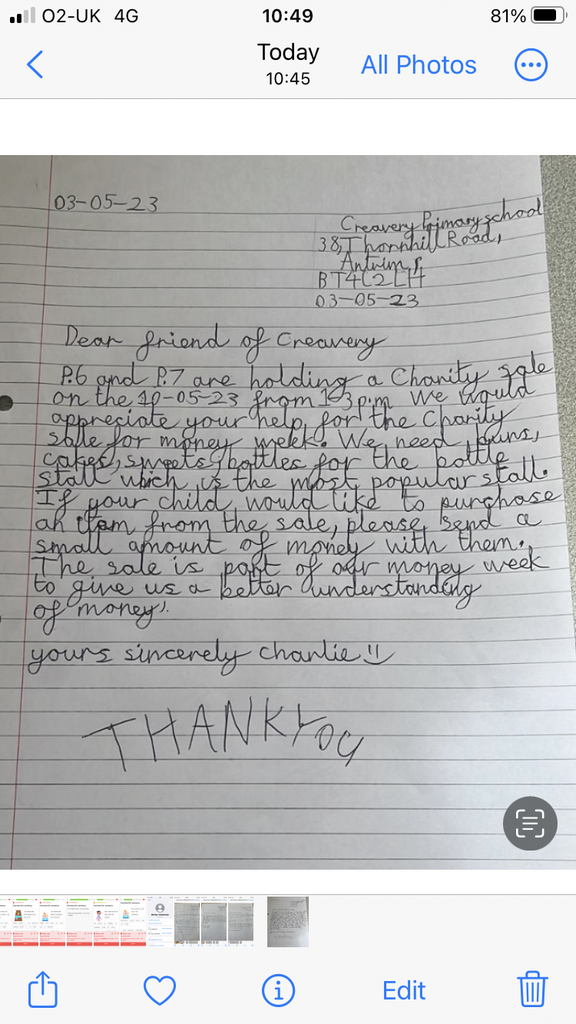 O2-UK 4G 10:49 81%
Today
10:45
All Photos
03-05-23
Creavery Primary school
38, Thornhill Road,
Antrim,
03-05-23
Dear friend of Creavery
P.6 and P.7 are holding a Charity sale
on the 10-05-23 from 1-3p.m We would
appresiate your help, for the Charity
sale for money week. We need, buns,
cakes, sweets, bottles for the bottle
stall which is the most popular stall.
If your child would like to purchase
an itam from the sale, please, send a
small amount of money with them.
The sale is part of our money week
to give us a better understanding
of money!.
yours sincerely charlie
THANKYOU
Edit